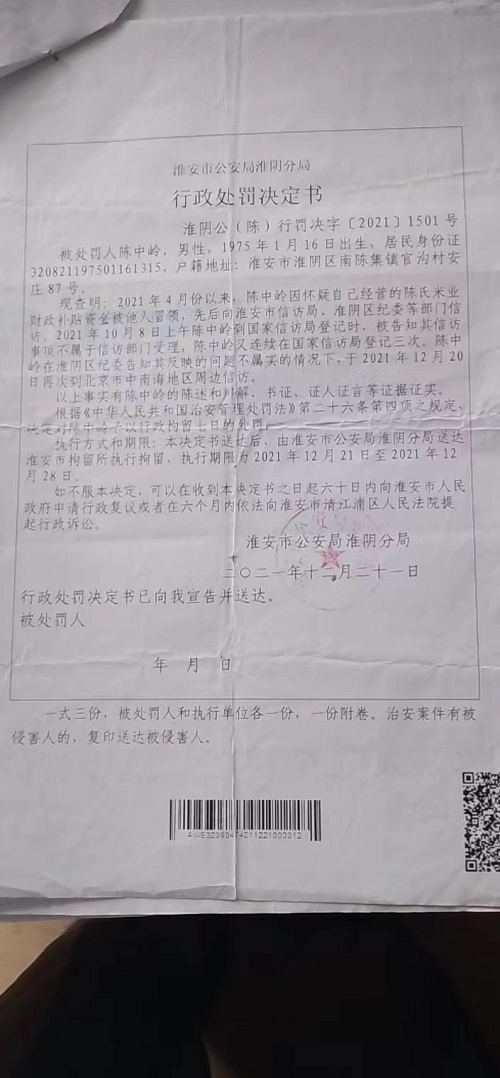 淮安市公安局淮阴分局
行政处罚决定书
淮阴公（陈）行罚决字〔2021〕1501 号
被处罚人陈中岭，男性，1975 年 1 月 16 日出生，居民身份证
320821197501161315，户籍地址：淮安市淮阴区南陈集镇官沟村安
庄 87 号。
现查明：2021 年 4 月份以来，陈中岭因怀疑自己经营的陈氏米业
财政补贴资金被他人冒领，先后向淮安市信访局、淮阴区纪委等部门信
访。2021 年 10 月 8 日上午陈中岭到国家信访局登记时，被告知其信访
事项不属于信访部门受理，陈中岭又连续在国家信访局登记三次。陈中
岭在淮阴区纪委告知其反映的问题不属实的情况下，于 2021 年 12 月 20
日再次到北京市中南海地区周边信访。
以上事实有陈中岭的陈述和申辩、书证、证人证言等证据证实。
根据《中华人民共和国治安管理处罚法》第二十六条第四项之规定，
决定对陈中岭予以行政拘留七日的处罚。
执行方式和期限：本决定书送达后，由淮安市公安局淮阴分局送达
淮安市拘留所执行拘留，执行期限为 2021 年 12 月 21 日至 2021 年 12
月 28 日。
如不服本决定，可以在收到本决定书之日起六十日内向淮安市人民
政府申请行政复议或者在六个月内依法向淮安市清江浦区人民法院提
起行政诉讼。
淮安市公安局淮阴分局
二〇二一年十二月二十一日
行政处罚决定书已向我宣告并送达。
被处罚人
年 月 日
一式三份，被处罚人和执行单位各一份，一份附卷。治安案件有被
侵害人的，复印送达被侵害人。